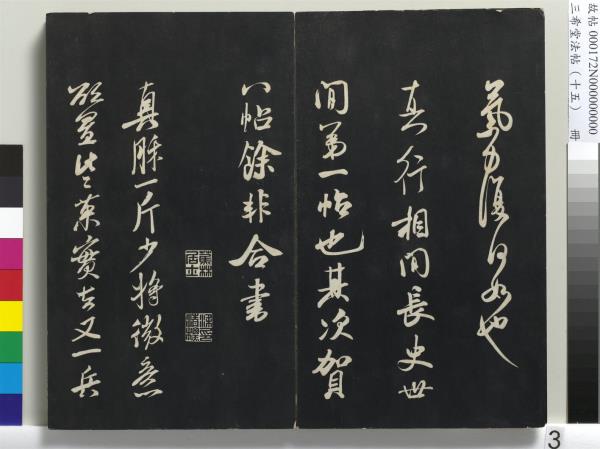 氣力復何如也
真行相間長史世
間第一帖也其次賀
八帖餘非合書
真酥一斤少將微意
欲置此果實去又一兵
故帖 000172N000000000
三希堂法帖(十五) 冊
3